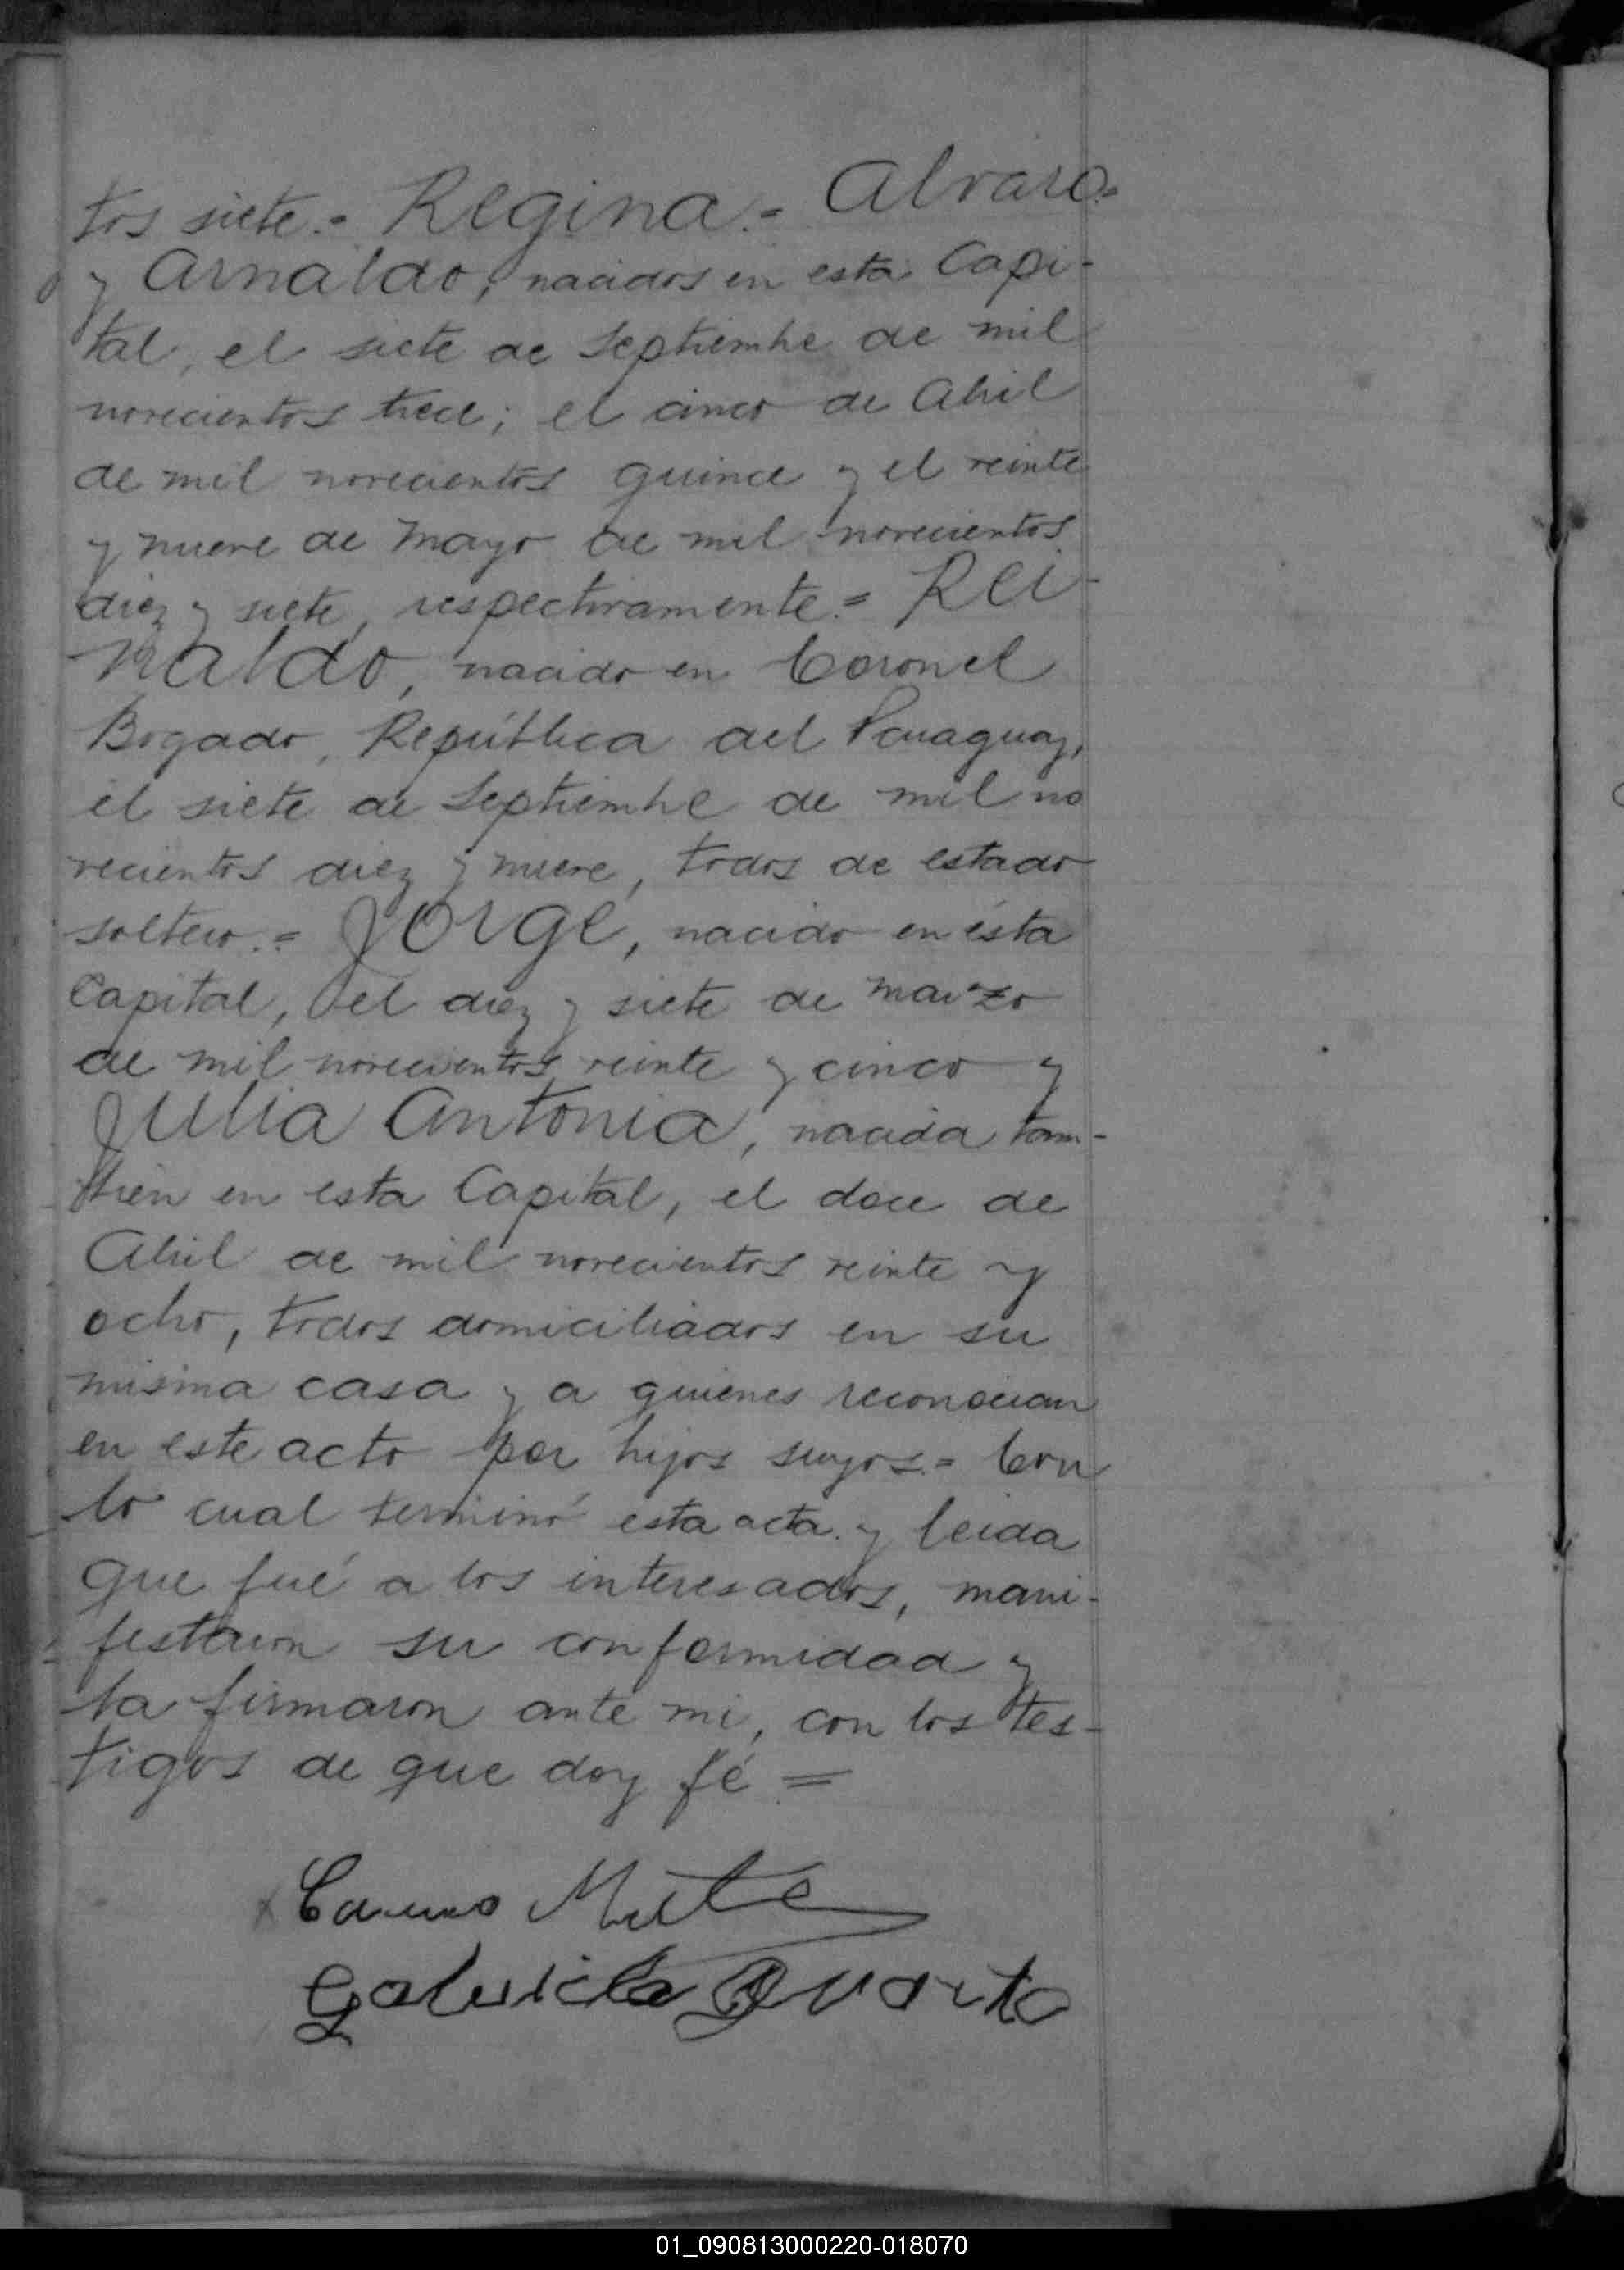 tos siete.= Regina.= Alvaro=
y Arnaldo, nacidos en esta Capi-
tal, el siete de Septiembre de mil
novecientos trece; el cinco de Abril
de mil novecientos quince y el veinte
y nueve de Mayo de mil novecientos
diez y siete, respectivamente.= Rei-
naldo, nacido en Coronel
Bogado, República del Paraguay,
el siete de Septiembre de mil no
vecientos diez y nueve, todos de estado
soltero.= Jorge, nacido en ésta
Capital, el diez y siete de Marzo
de mil novecientos veinte y cinco y
Julia Antonia, nacida tam-
bien en esta Capital, el doce de
Abril de mil novecientos veinte y
ocho, todos domiciliados en su
misma casa y a quienes reconocian
en este acto por hijos suyos.= Con
lo cual terminó esta acta y leida
que fué a los interesados, mani-
festaron su conformidad y
la firmaron ante mi, con los tes-
tigos de que doy fé =
Gabriela
01_090813000220-018070